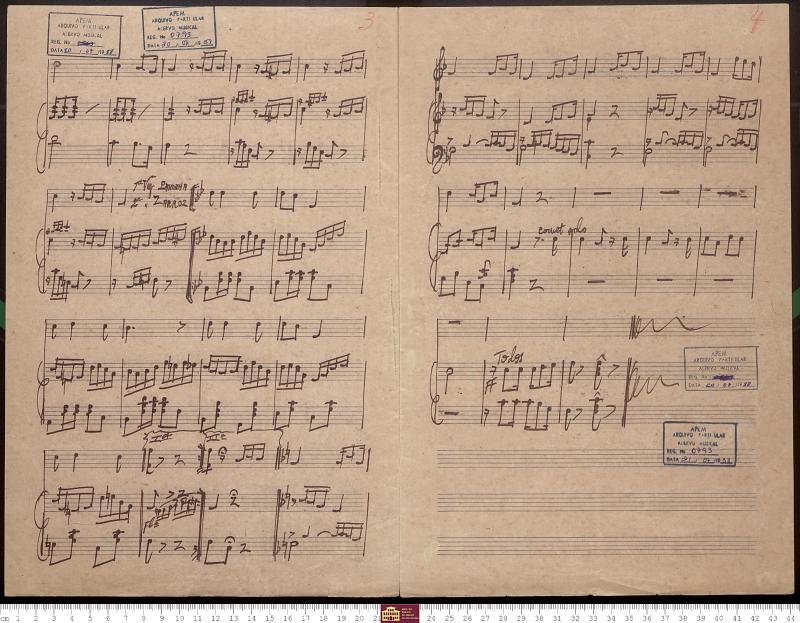 APEM
ARQUIVO PARTICULAR
ACERVO MUSICAL
REG. No
DATA 20 . 07 .
APEM
ARQUIVO PARTICULAR
ACERVO MUSICAL
REG. No 0793
DATA 20 . 07 .
3
4
1ª Vez
cornet solo
Todos
APEM
ARQUIVO PARTICULAR
ACERVO MUSICAL
REG. No
DATA 20 . 07 .
APEM
ARQUIVO PARTICULAR
ACERVO MUSICAL
REG. No 0793
DATA 21 . 07 .
cm 1 2 3 4 5 6 7 8 9 10 11 12 13 14 15 16 17 18 19 20 24 25 26 27 28 29 30 31 32 33 34 35 36 37 38 39 40 41 42 43 44